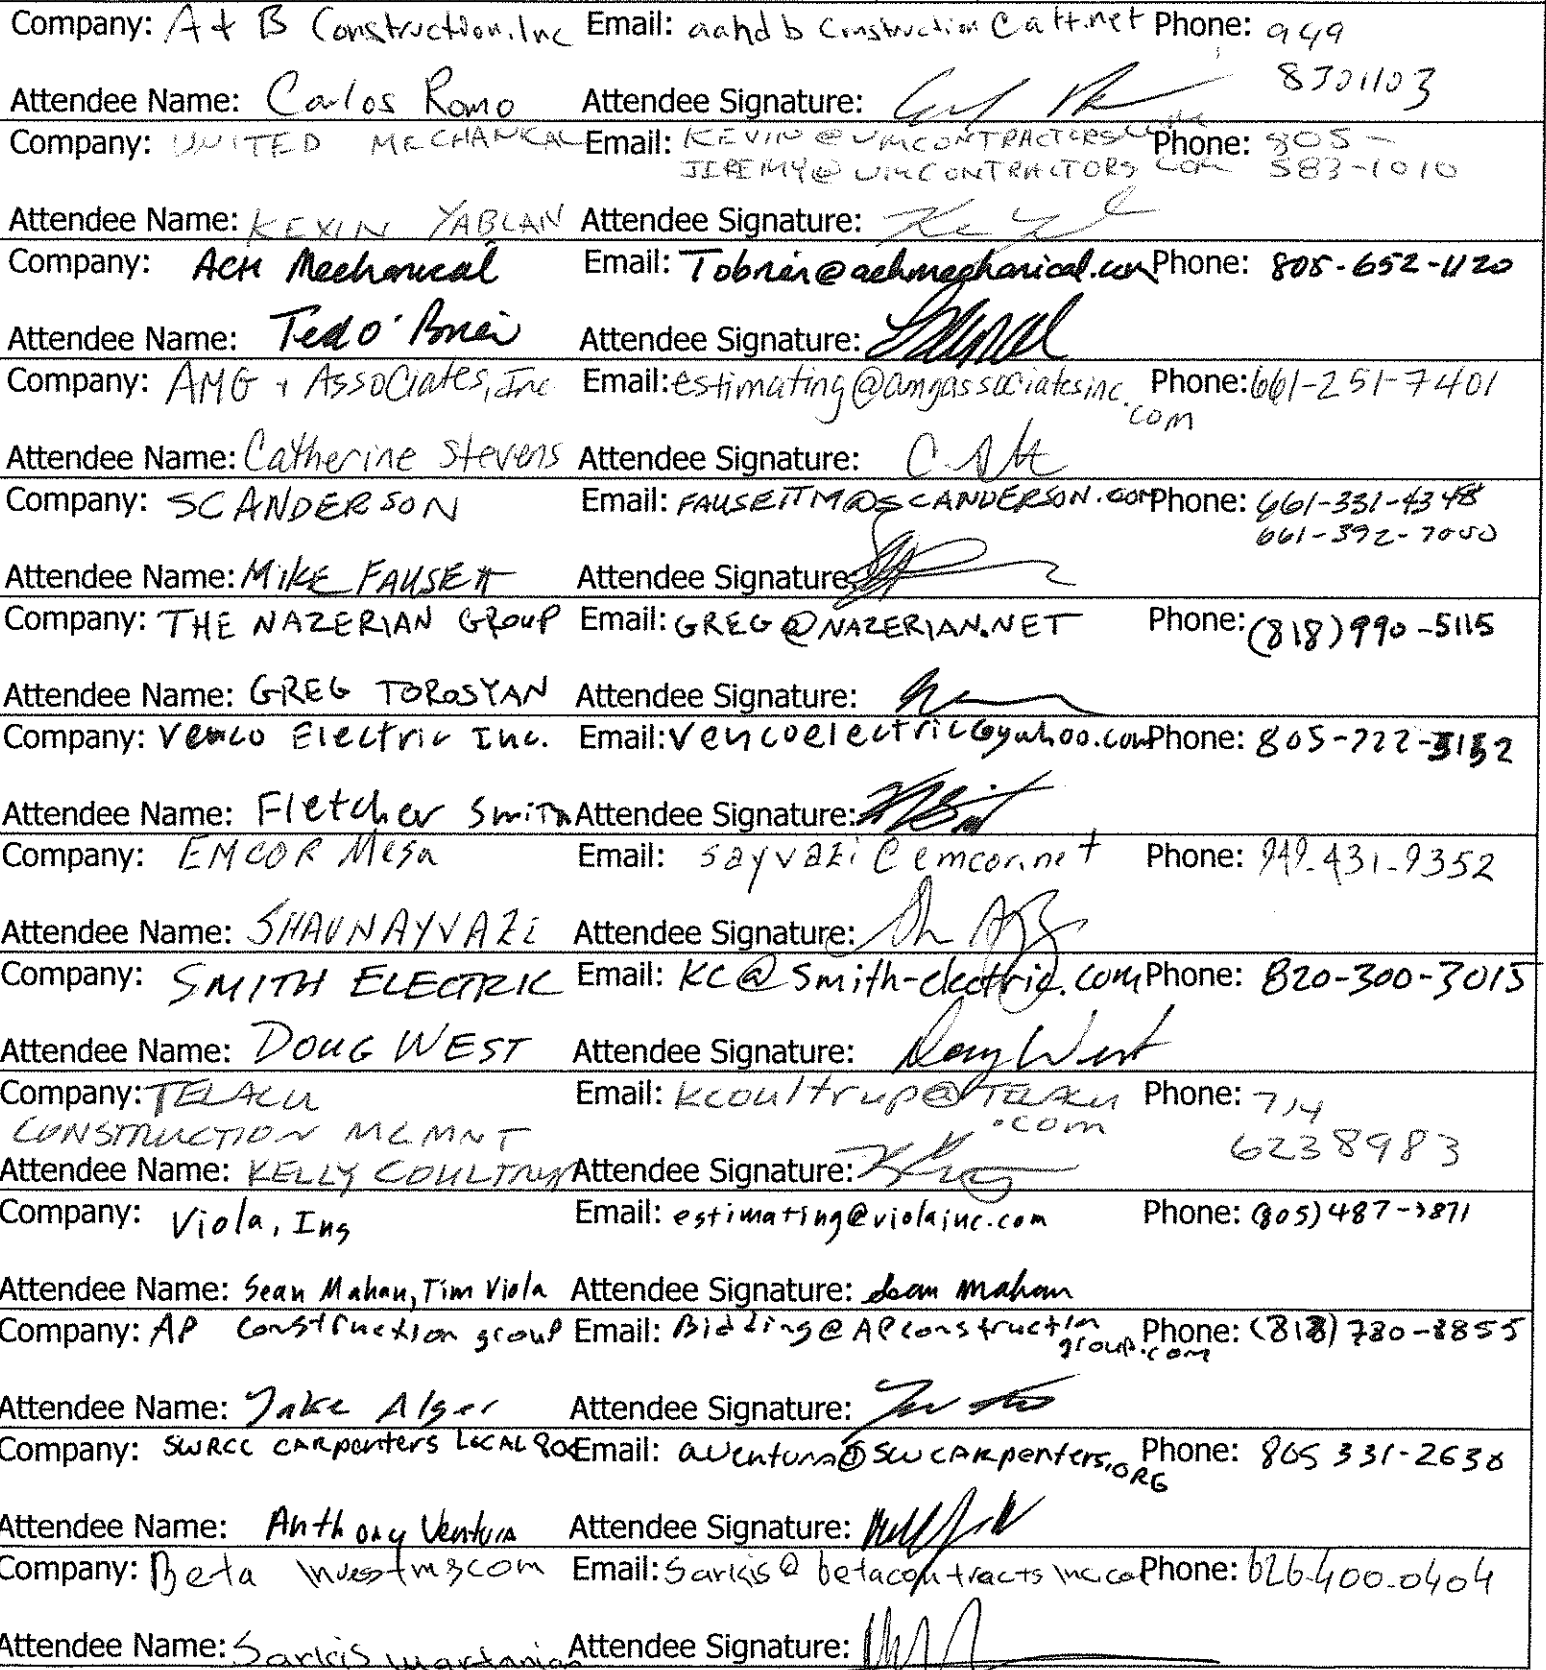 Company: A + B Construction, Inc Email: aandb Construction@att.net Phone: 949
8301103
Attendee Name: Carlos Romo Attendee Signature:
Company: UNITED MECHANICAL Email: KEVIN@UMCONTRACTORS.COM Phone: 805-
JEREMY@UMCONTRACTORS.COM 583-1010
Attendee Name: KEVIN YABLAN Attendee Signature:
Company: ACH Mechanical Email: Tobrien@achmechanical.com Phone: 805-652-1120
Attendee Name: Ted O'Brien Attendee Signature:
Company: AMG + Associates, Inc Email: estimating@amgassociatesinc. Phone: 661-251-7401
com
Attendee Name: Catherine Stevens Attendee Signature:
Company: SC ANDERSON Email: FAUSETTM@SCANDERSON.COM Phone: 661-331-4348
661-392-7000
Attendee Name: MIKE FAUSETT Attendee Signature:
Company: THE NAZERIAN GROUP Email: GREG@NAZERIAN.NET Phone: (818) 990-5115
Attendee Name: GREG TOROSYAN Attendee Signature:
Company: Venco Electric Inc. Email: Vencoelectric@yahoo.com Phone: 805-222-3132
Attendee Name: Fletcher Smith Attendee Signature:
Company: EMCOR Mesa Email: sayvazi@emcor.net Phone: 949-431-9352
Attendee Name: SHAUN AYVAZI Attendee Signature:
Company: SMITH ELECTRIC Email: KC@Smith-electric.com Phone: 820-300-3015
Attendee Name: DOUG WEST Attendee Signature: Doug West
Company: TELACU Email: kcoultrup@TELACU Phone: 714
CONSTRUCTION MGMNT .com 6238983
Attendee Name: KELLY COULTRUP Attendee Signature:
Company: Viola, Inc Email: estimating@violainc.com Phone: (805) 487-3871
Attendee Name: Sean Mahan, Tim Viola Attendee Signature: Sean Mahan
Company: AP Construction group Email: Bidding@APconstruction Phone: (818) 780-8855
group.com
Attendee Name: Jake Alger Attendee Signature:
Company: SWRCC CARPenters LOCAL 805 Email: aventura@swcarpenters.ORG Phone: 805 331-2638
Attendee Name: Anthony Ventura Attendee Signature:
Company: Beta Email: Sarkis@betacontractsinc.co Phone: 626-400-0404
Attendee Name: Sarkis Attendee Signature: